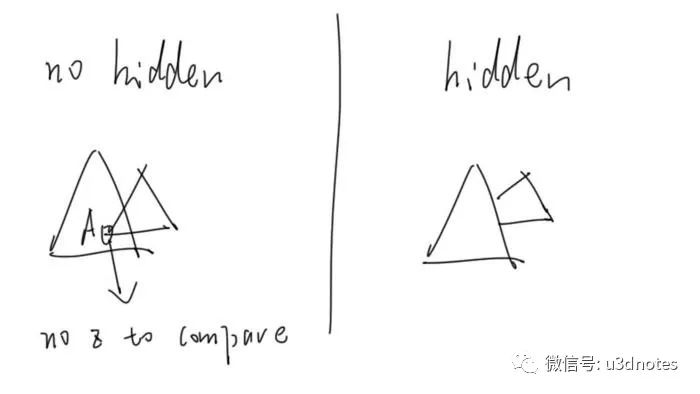 no hidden
hidden
A
no z to compare
微信号: u3dnotes